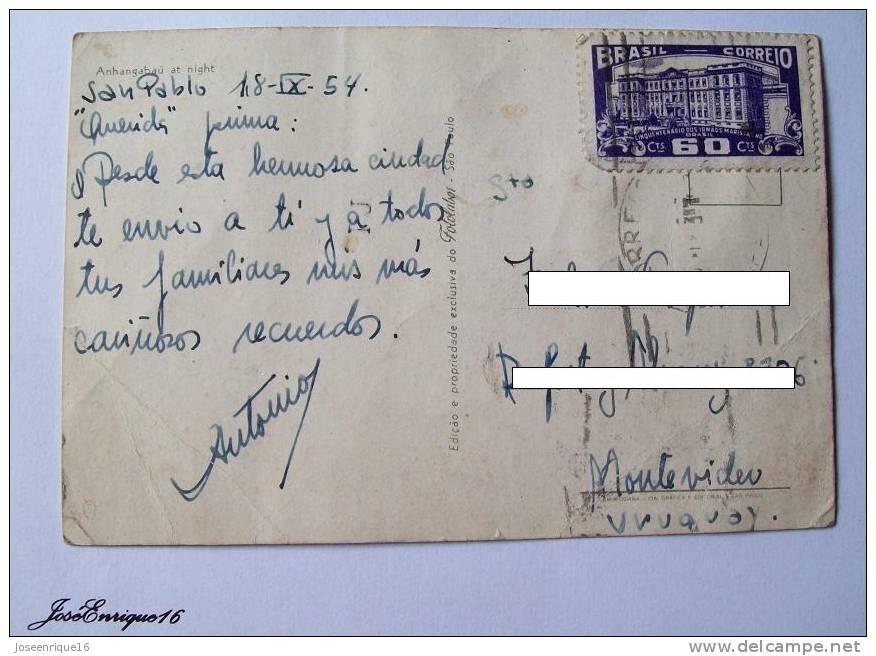 Anhangabaú at night
San Pablo 18-IX-54.
"Querida" prima:
Desde esta hermosa ciudad
te envio a ti y a todos
tus familiares mis más
cariñosos recuerdos.
Antonio
Edição e propriedade exclusiva do Fotolabor - São Paulo
BRASIL — CORREIO
CINQUENTENÁRIO DOS IRMÃOS MARISTAS NO
BRASIL
60 CTS
Montevideo
JoséEnrique16
Joseenrique16
delcampe.net